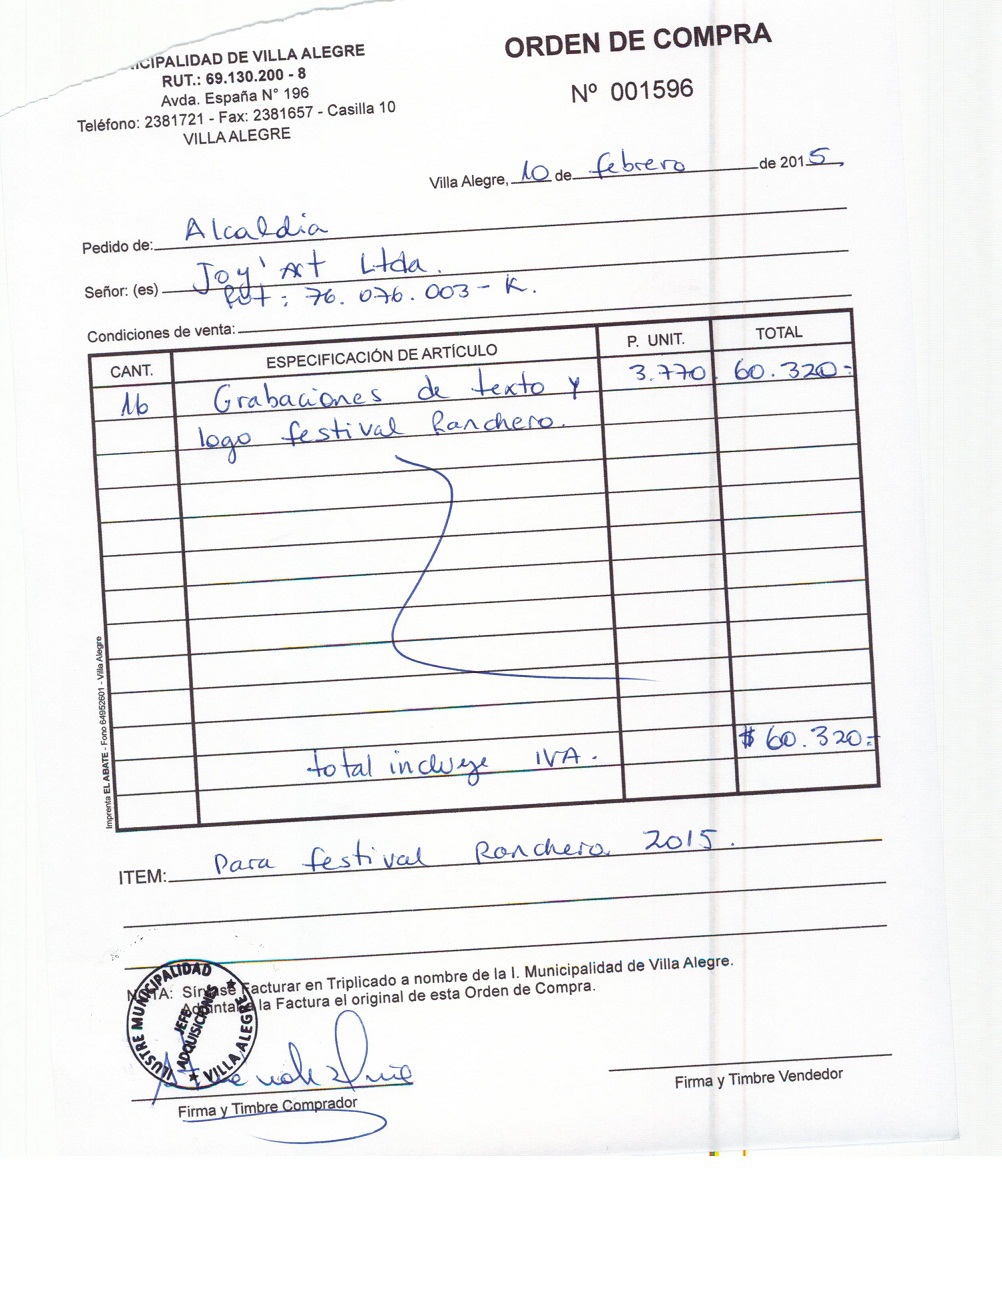 ICIPALIDAD DE VILLA ALEGRE
RUT.: 69.130.200 - 8
Avda. España N° 196
Teléfono: 2381721 - Fax: 2381657 - Casilla 10
VILLA ALEGRE
ORDEN DE COMPRA
Nº 001596
Villa Alegre, 10 de febrero de 2015,
Pedido de: Alcaldia
Señor: (es) Joy' Art Ltda.
Rut: 76.076.003-K.
Condiciones de venta:
CANT. ESPECIFICACIÓN DE ARTÍCULO P. UNIT. TOTAL
16 Grabaciones de texto y 3.770 60.320.-
logo festival Ranchero.
total incluye IVA. $ 60.320.-
Imprenta EL ABATE - Fono 64952601 - Villa Alegre
ITEM: Para festival Ranchero 2015.
NOTA: Sírvase Facturar en Triplicado a nombre de la I. Municipalidad de Villa Alegre.
Adjuntar a la Factura el original de esta Orden de Compra.
ILUSTRE MUNICIPALIDAD
JEFE
ADQUISICIONES
VILLA ALEGRE
Firma y Timbre Comprador
Firma y Timbre Vendedor